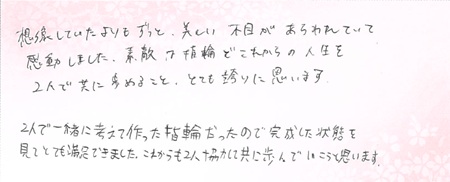 想像していたよりもずっと、美しい木目があらわれていて
感動しました。素敵な指輪とこれからの人生を
2人で共に歩めること、とても誇りに思います。
2人で一緒に考えて作った指輪だったので完成した状態を
見てとても満足できました。これからも2人協力して共に歩んでいこうと思います。